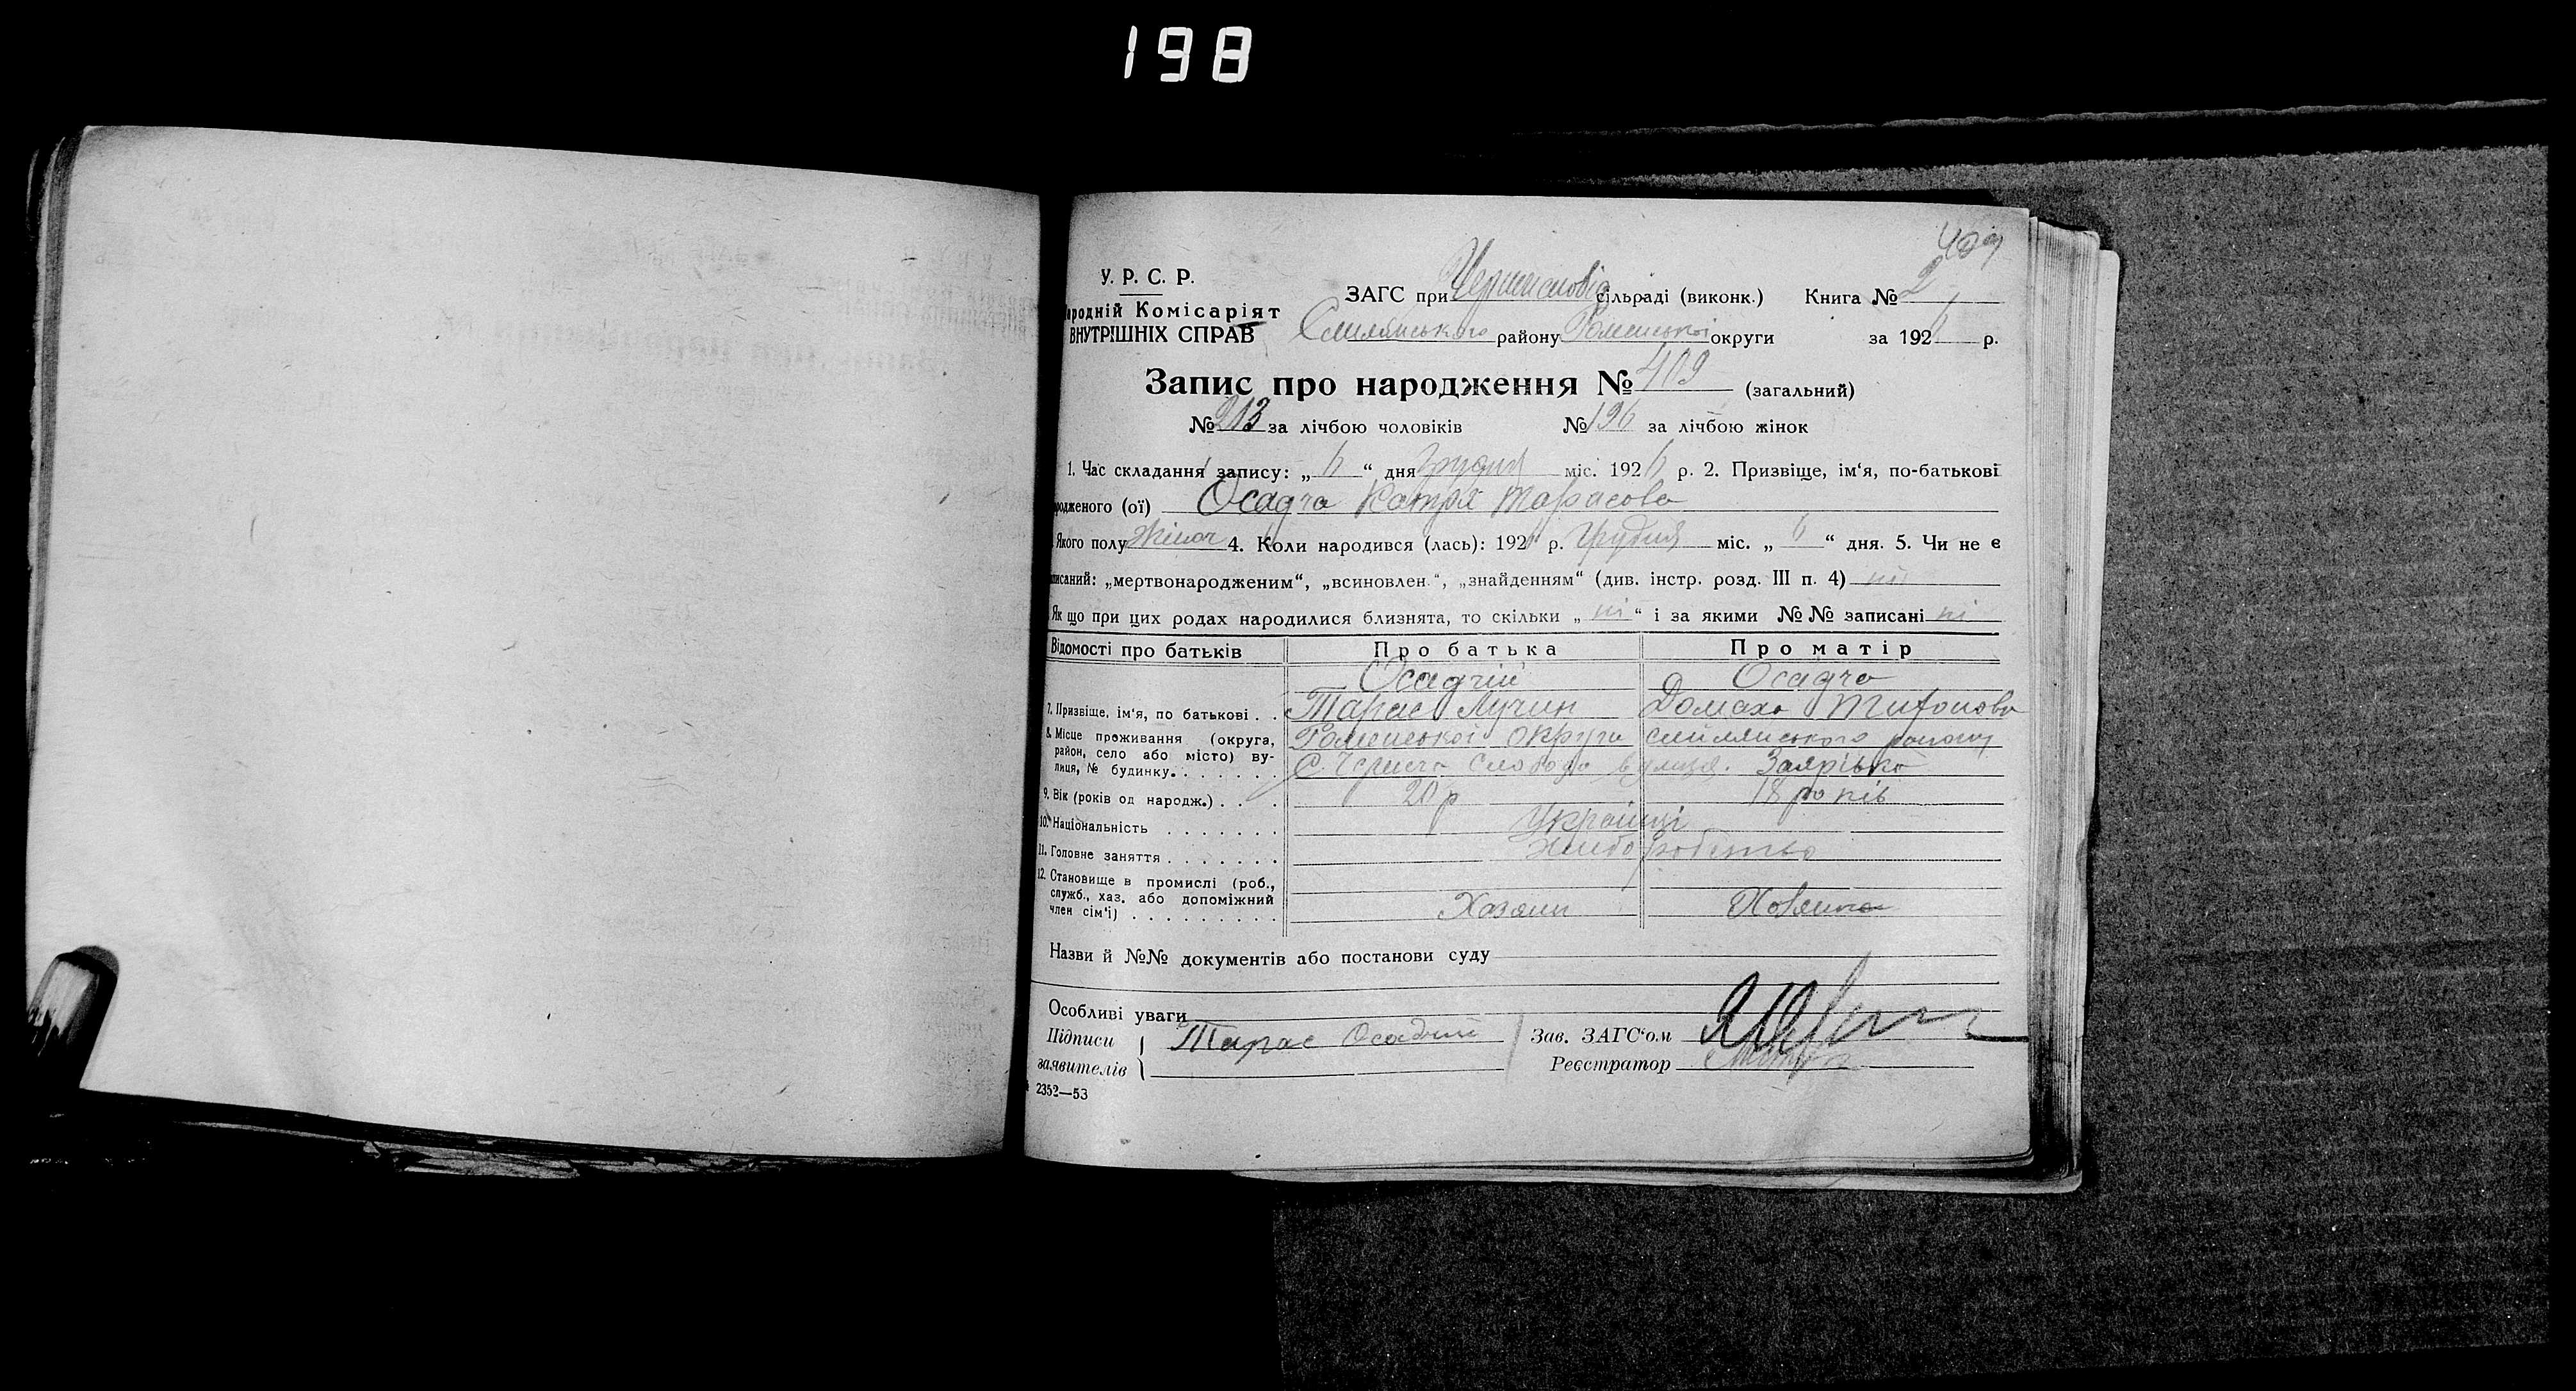 198
409
У. Р. С. Р.
ародній Комісаріят
ВНУТРІШНІХ СПРАВ
ЗАГС при сільраді (виконк.) Книга № 2
Смілянського району Роменської округи за 1926 р.
Запис про народження № 409 (загальний)
№ 213 за лічбою чоловіків № 196 за лічбою жінок
1. Час складання запису: „ 6 “ дня Грудня міс. 1926 р. 2. Призвіще, ім‘я, по-батькові
родженого (ої) Осадча Катря Тарасова
Якого полу жіноч 4. Коли народився (лась): 1926 р. Грудня міс. „ 6 “ дня. 5. Чи не є
писаний: „мертвонародженим“, „всиновлен.“, „знайденням“ (див. інстр. розд. III п. 4) ні
Як що при цих родах народилися близнята, то скільки „ ні “ і за якими №№ записані ні
Відомості про батьків Про батька Про матір
Осадчий Осадча
7. Призвіще, ім‘я, по батькові . . Тарас Лучин Домаха
8. Місце проживання (округа, Роменської округи Смілянського району
район, село або місто) ву-
лиця, № будинку. . . . . . . С. Чернеча Слобода вулиця. Заярівка
9. Вік (років од народж.) . . . 20 р 18 років
10. Національність . . . . . . . Українці
11. Головне заняття . . . . . . . Хліборобство
12. Становище в промислі (роб.,
служб., хаз. або допоміжний
член сім‘ї) . . . . . . . . . Хазяин
Назви й №№ документів або постанови суду
Особливі уваги
Підписи Тарас Осадчий Зав. ЗАГС‘ом
заявителів Реєстратор
2352—53